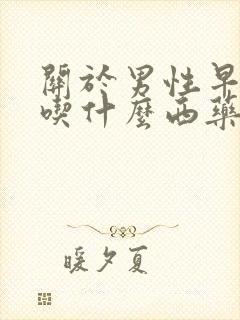 關於男性早
喫什麼西藥
暖夕夏